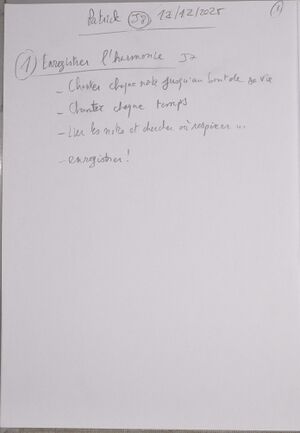 Patrick J8 12/12/2025 1
1) Enregistrer l'harmonie J7
- Chanter chaque note jusqu'au bout de sa vie
- Chanter chaque temps
- Lier les notes et chercher où respirer ...
- enregistrer !